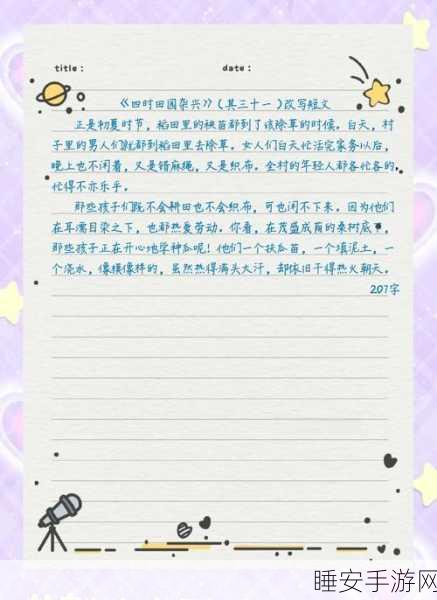 title： date：
《四时田园杂兴》（其三十一）改写短文
正是初夏时节，稻田里的秧苗都到了该除草的时候。白天，村
子里的男人们就都到稻田里去除草。女人们白天忙活完家务以后，
晚上也不闲着，又是搓麻绳，又是织布。全村的年轻人都各忙各的，
忙得不亦乐乎。
那些孩子们既不会耕田也不会织布，可也闲不下来。因为他们
在耳濡目染之下，也都热爱劳动。你看，在茂盛成荫的桑树底下，
那些孩子正在开心地学种瓜呢！他们一个扶瓜苗，一个填泥土，一
个浇水，像模像样的，虽然热得满头大汗，却依旧干得热火朝天。
207字
睡安手游网